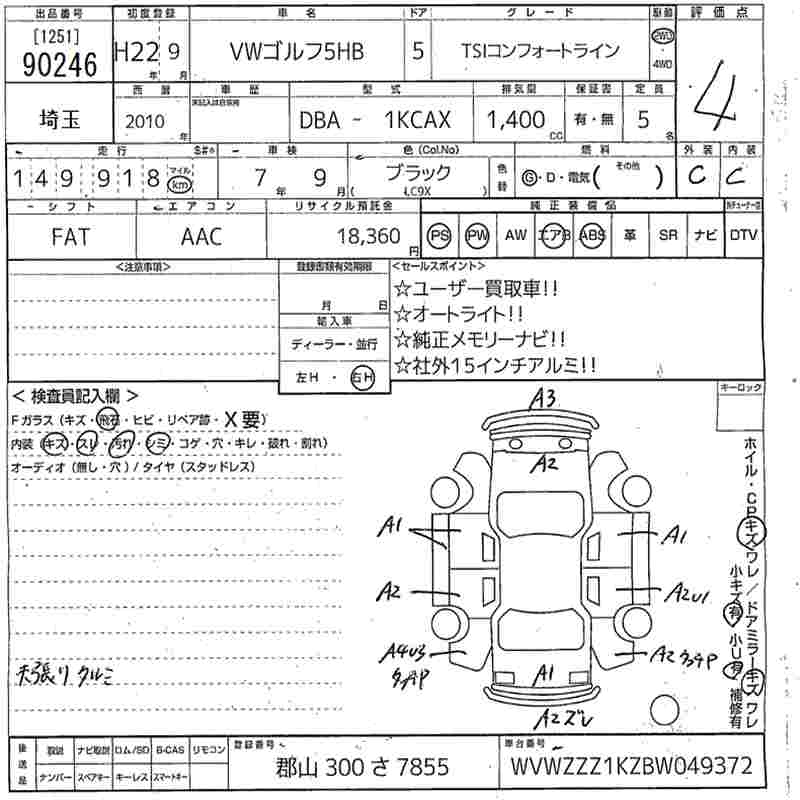 出品番号 初度登録 車名 ドア グレード 駆動 評価点
[1251]
90246 H22 9 VWゴルフ5HB 5 TSIコンフォートライン 2WD 4WD 4
年 月
西暦 車歴 型式 排気量 保証書 定員
未記入は自家用
埼玉 2010 年 DBA - 1KCAX 1,400 CC 有・無 5 名
走行 S#® 車検 色(Col.No) 燃料 外装 内装
149918 マイル km 7年 9月 ブラック ( LC9X ) 色替 G・D・電気( その他 ) C C
シフト エアコン リサイクル預託金 純正装備品
FAT AAC 18,360円 PS PW AW エアB ABS 革 SR ナビ DTV
<注意事項> 登録書類有効期限 <セールスポイント>
月 日
☆ユーザー買取車!!
輸入車 ☆オートライト!!
ディーラー・並行 ☆純正メモリーナビ!!
左H・右H ☆社外15インチアルミ!!
<検査員記入欄> キーロック
Fガラス(キズ・飛石・ヒビ・リペア跡・X要)
内装(キズ・スレ・汚れ・シミ・コゲ・穴・キレ・破れ・割れ)
オーディオ(無し・穴)/タイヤ(スタッドレス)
A3
A2
A1 A1
A2 A2U1
A4U3 A2
A1
A2ズレ
天張りタルミ
ホイル・CPキズワレ/ドアミラーキズワレ
小キズ有 小U有 補修有
後送品 取説 ナビ取説 ロム/SD B-CAS リモコン 登録番号 車台番号
ナンバー スペアキー キーレス スマートキー 郡山 300 さ 7855 WVWZZZ1KZBW049372